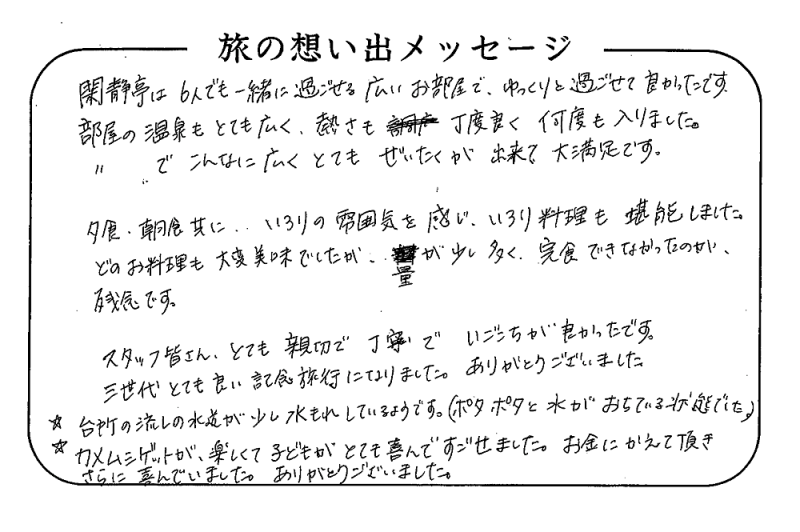 旅の想い出メッセージ
閑静亭は 6人でも一緒に過ごせる 広い お部屋で、ゆっくりと過ごせて 良かったです。
部屋の 温泉も とても広く、熱さも 丁度良く 何度も 入りました。
〃 で こんなに 広く とても ぜいたくが 出来て 大満足です。
夕食・朝食共に‥いろりの 雰囲気を 感じ、いろり料理も 堪能しました。
どのお料理も 大変美味でしたが、量が少し多く、完食できなかったのが、
残念です。
スタッフ皆さん、とても 親切で 丁寧で いごこちが良かったです。
三世代 とても良い 記念旅行になりました。ありがとうございました
☆ 台所の流しの水道が少し水もれしているようです。(ポタポタと水がおちている状態でした)
☆ カメムシゲットが、楽しくて 子どもが とても喜んですごせました。お金にかえて頂き
さらに 喜んでいました。ありがとうございました。